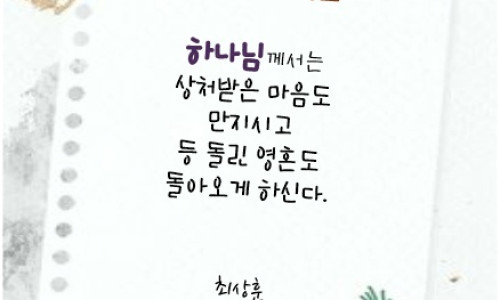 하나님께서는
상처받은 마음도
만지시고
등 돌린 영혼도
돌아오게 하신다.
최상훈